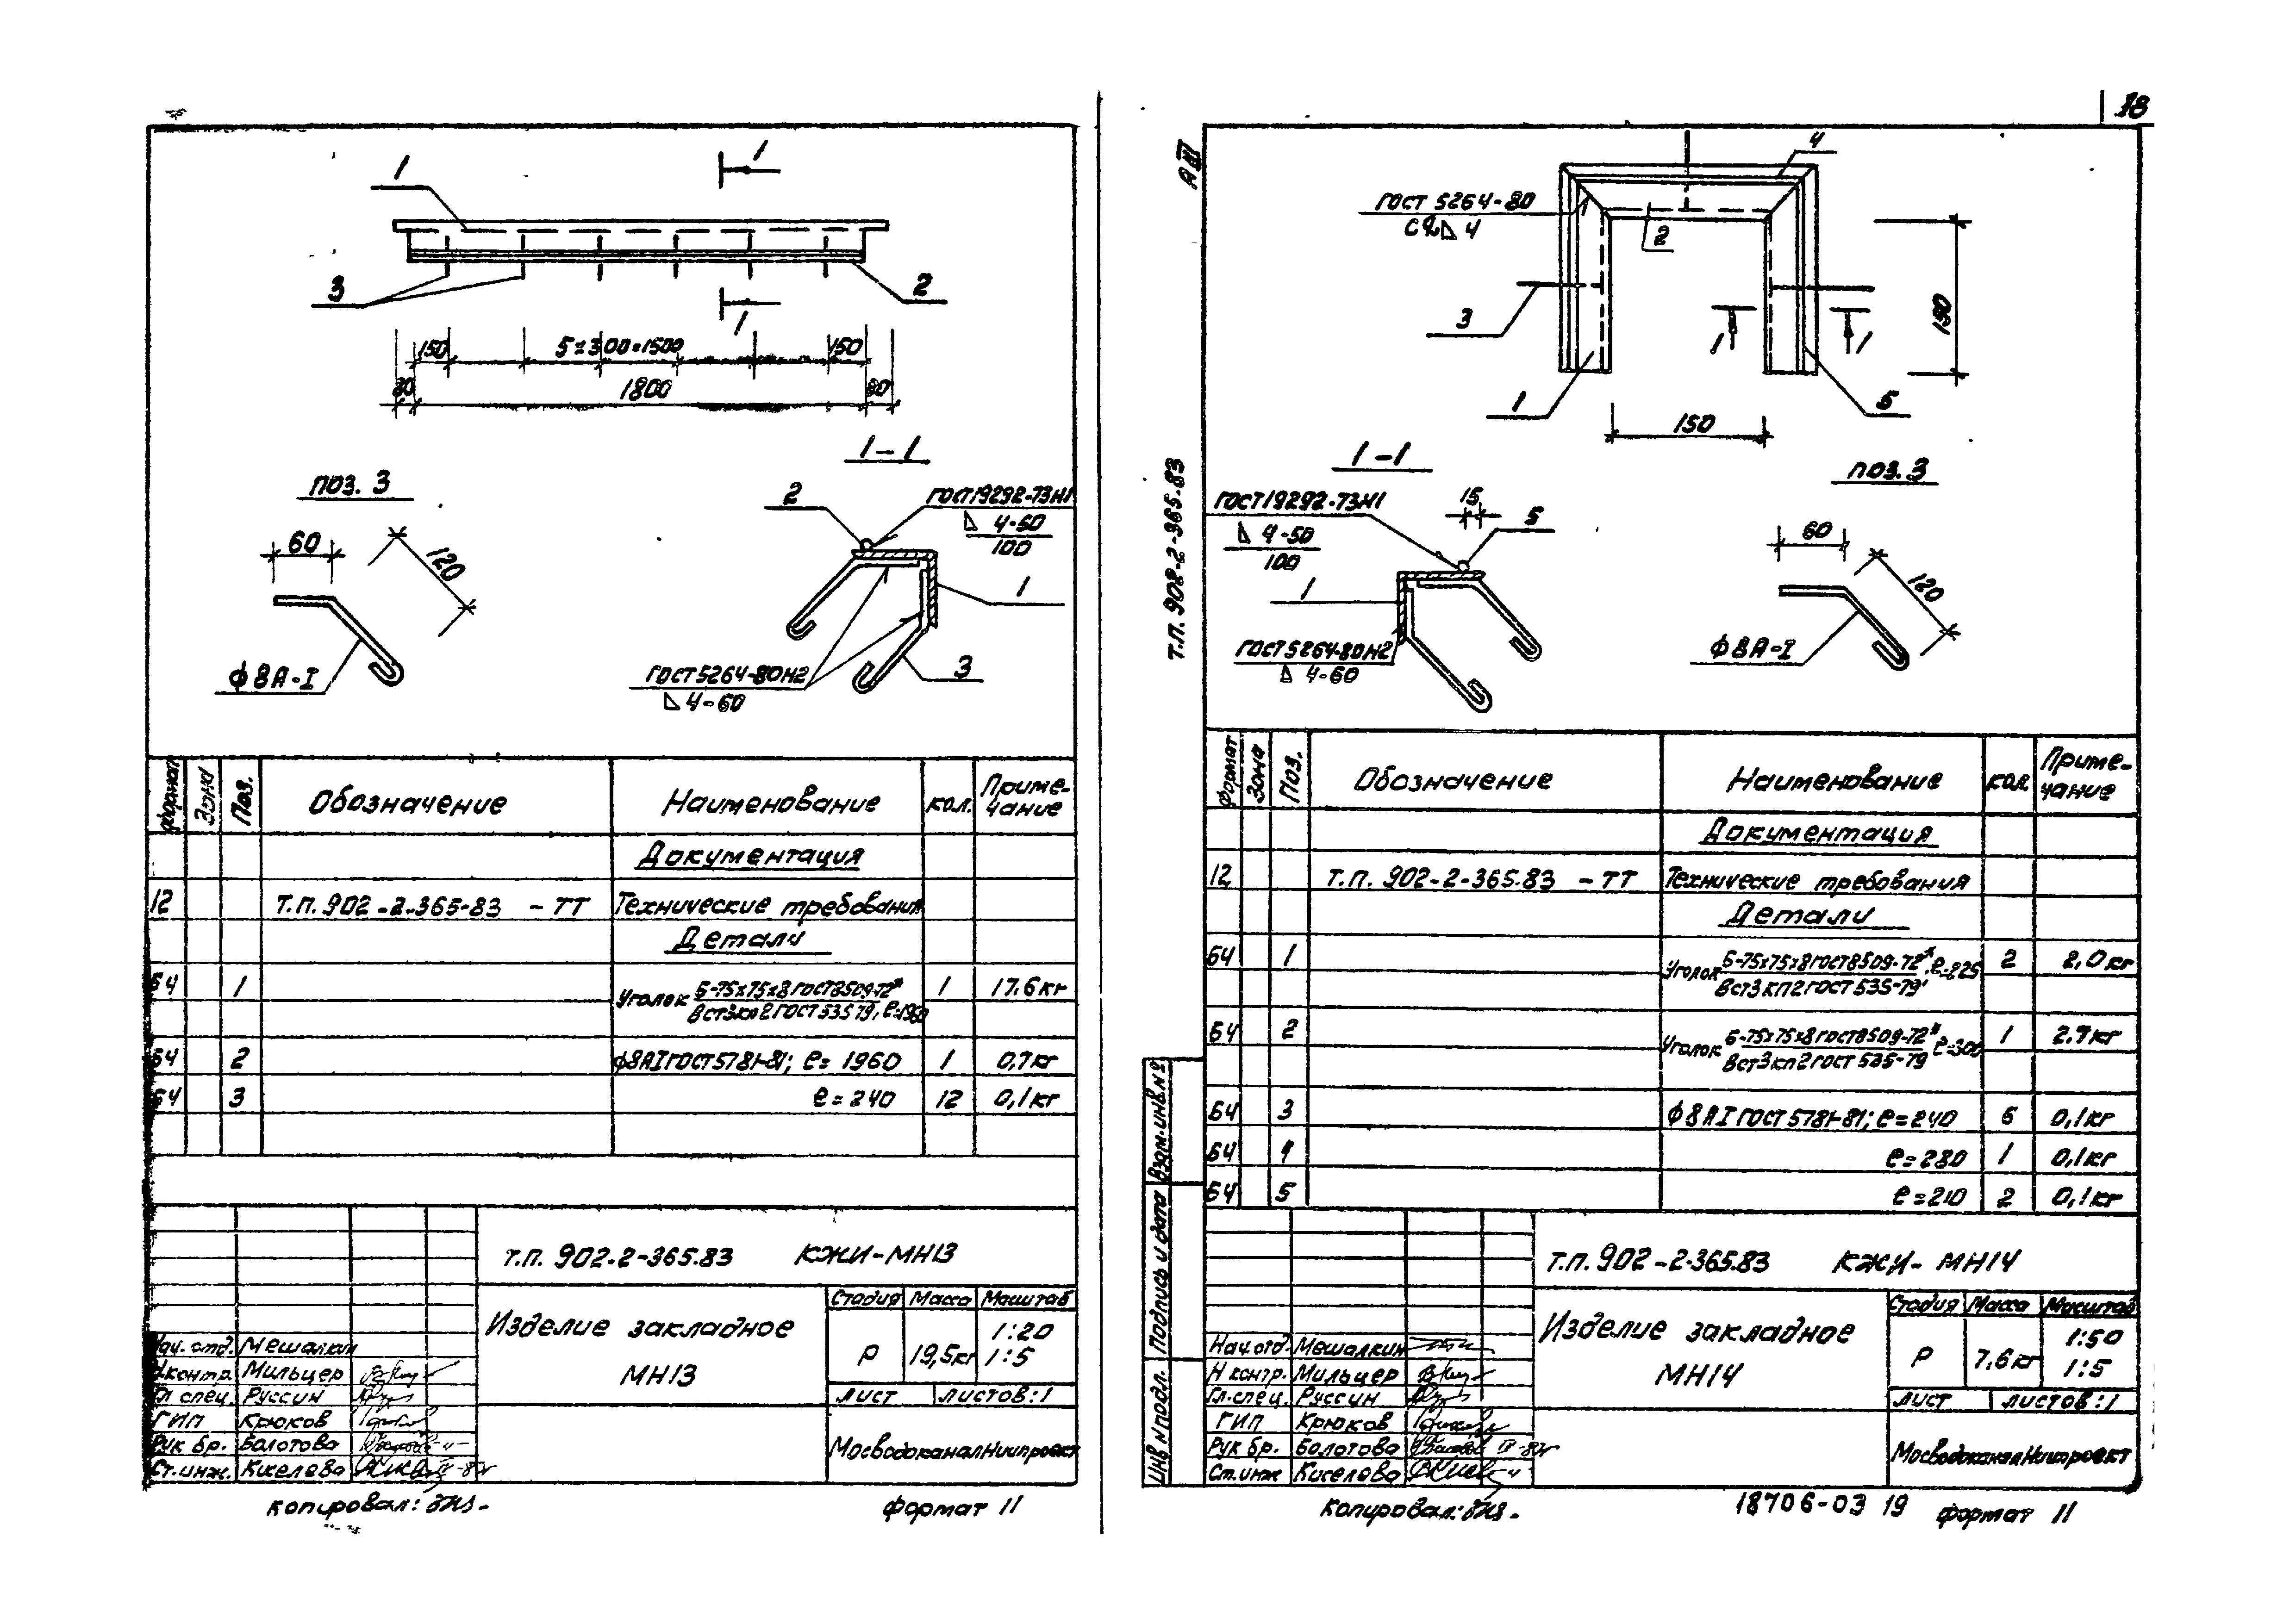 18
1
1
1
3
2
150
5х300=1500
150
80
1800
80
1-1
поз. 3
60
120
ф8А-I
2
ГОСТ19292-73Н1
4-50
100
1
ГОСТ5264-80Н2
4-60
3
формат
Зона
Поз.
Обозначение
Наименование
кол.
Приме-
чание
Документация
12 Т.П. 902-2-365-83 -ТТ Технические требования
Детали
Б4 1 Уголок Б-75х75х8 ГОСТ8509-72* 1 17,6кг
Вст3кп2ГОСТ 535-79, ℓ=1960
Б4 2 ф8АIГОСТ5781-81; ℓ= 1960 1 0,7кг
Б4 3 ℓ=240 12 0,1кг
Т.П. 902-2-365.83 КЖИ-МН13
Изделие закладное
МН13
Стадия Масса Масштаб
Р 19,5кг 1:20
1:5
Лист Листов:1
МосводоканалНиипроект
Нач. отд. Мешалкин
Н.контр. Мильцер
Гл спец. Руссин
ГИП Крюков
Рук бр. Болотова
Ст.инж. Киселева
копировал:
формат 11
Т.П. 902-2-365.83
4
ГОСТ 5264-80
4
2
3
1
1
1
5
150
150
1-1
поз. 3
ГОСТ19292-73Н1
4-50
100
15
5
1
ГОСТ5264-80Н2
4-60
60
120
ф8А-I
формат
Зона
Поз.
Обозначение
Наименование
кол.
Приме-
чание
Документация
12 Т.П. 902-2-365.83 -ТТ Технические требования
Детали
Б4 1 Уголок Б-75х75х8ГОСТ8509-72*, ℓ=225 2 2,0кг
Вст3кп2ГОСТ 535-79
Б4 2 Уголок Б-75х75х8ГОСТ8509-72* ℓ=300 1 2.7кг
Вст3кп2ГОСТ 535-79
Б4 3 ф8АI ГОСТ5781-81; ℓ=240 6 0,1кг
Б4 4 ℓ=280 1 0,1кг
Б4 5 ℓ=210 2 0,1кг
Т.П. 902-2-365.83 КЖИ- МН14
Изделие закладное
МН14
Стадия Масса Масштаб
Р 7,6кг 1:50
1:5
Лист Листов:1
МосводоканалНиипроект
Нач.отд. Мешалкин
Н контр. Мильцер
Гл.спец. Руссин
ГИП Крюков
Рук бр. Болотова
Ст.инж Киселева
Взам.инв.№
Подпись и дата
Инв №подл.
копировал:
18706-03 19
формат 11